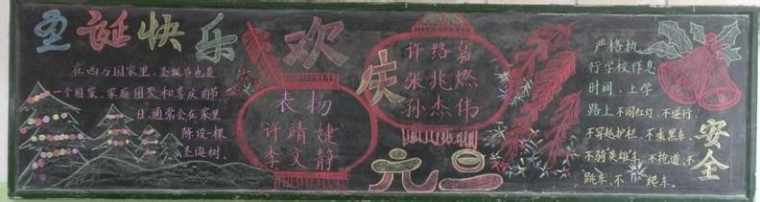 圣诞快乐
在西方国家里,圣诞节也是
一个团聚,家庭团聚和喜庆的节
日,通常会在家里
陈设一棵
圣诞树.
欢
庆
元旦
衣杨
许晴婕
李文静
许绍嘉
朱兆燃
孙杰伟
严格执
行学校作息
时间,上学
路上不闯红灯,不逆行,
不穿越护栏,不乘黑车,
不骑英雄车,不抢道,不
跳车,不爬车.
安全